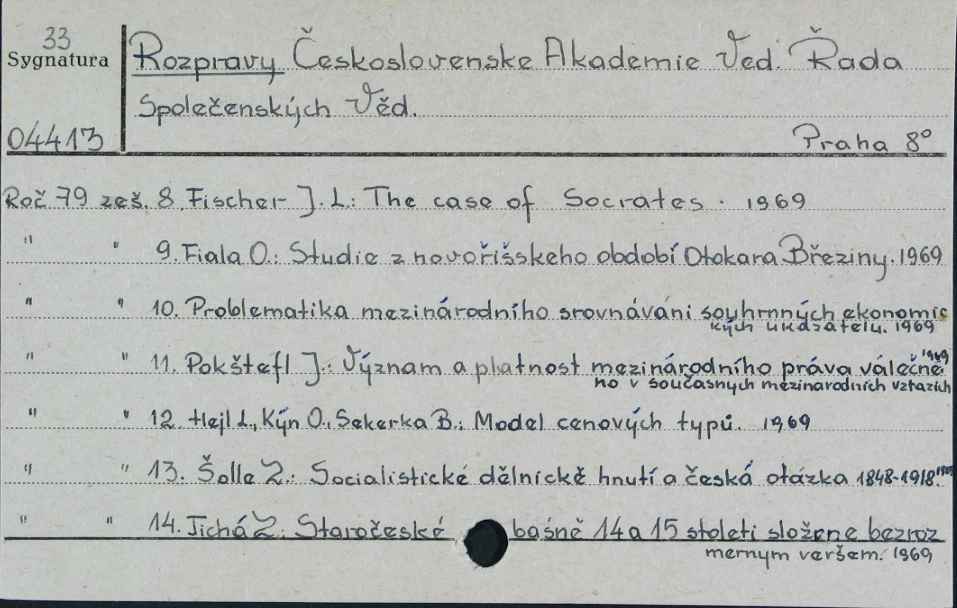 33
Sygnatura
04413
Rozpravy Československe Akademie Věd. Řada
Společenských Věd.
Praha 8°
Roč 79 zeš. 8. Fischer J. L.: The case of Socrates. 1969
" " 9. Fiala O.: Studie z novořišskeho období Otokara Březiny. 1969
" " 10. Problematika mezinárodního srovnávání souhrnných ekonomic
kých ukazatelu. 1969
" " 11. Pokštefl J.: Význam a platnost mezinárodního práva válečné 1969
ho v současnych mezinarodních vztazích
" " 12. Hejl L., Kýn O., Sekerka B.: Model cenových typů. 1969
" " 13. Šolle Z.: Socialistické dělnické hnutí a česká otázka 1848-1918. 1969
" " 14. Tichá Z. Staročeské basně 14 a 15 stoleti složene bezroz
mernym veršem. 1969